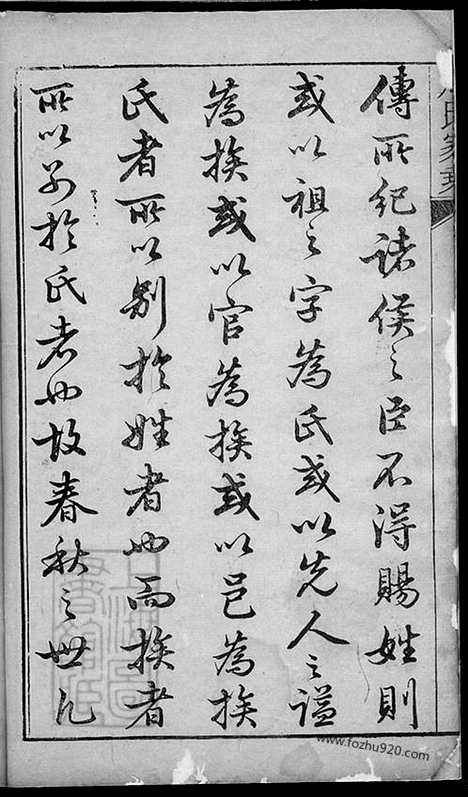 傳所紀諸侯之臣不得賜姓則
或以祖之字為氏或以先人之謚
為族或以官為族或以邑為族
氏者所以別於姓者也而族者
所以別於氏者也故春秋之世凡
氏家
www.fozhu920.com